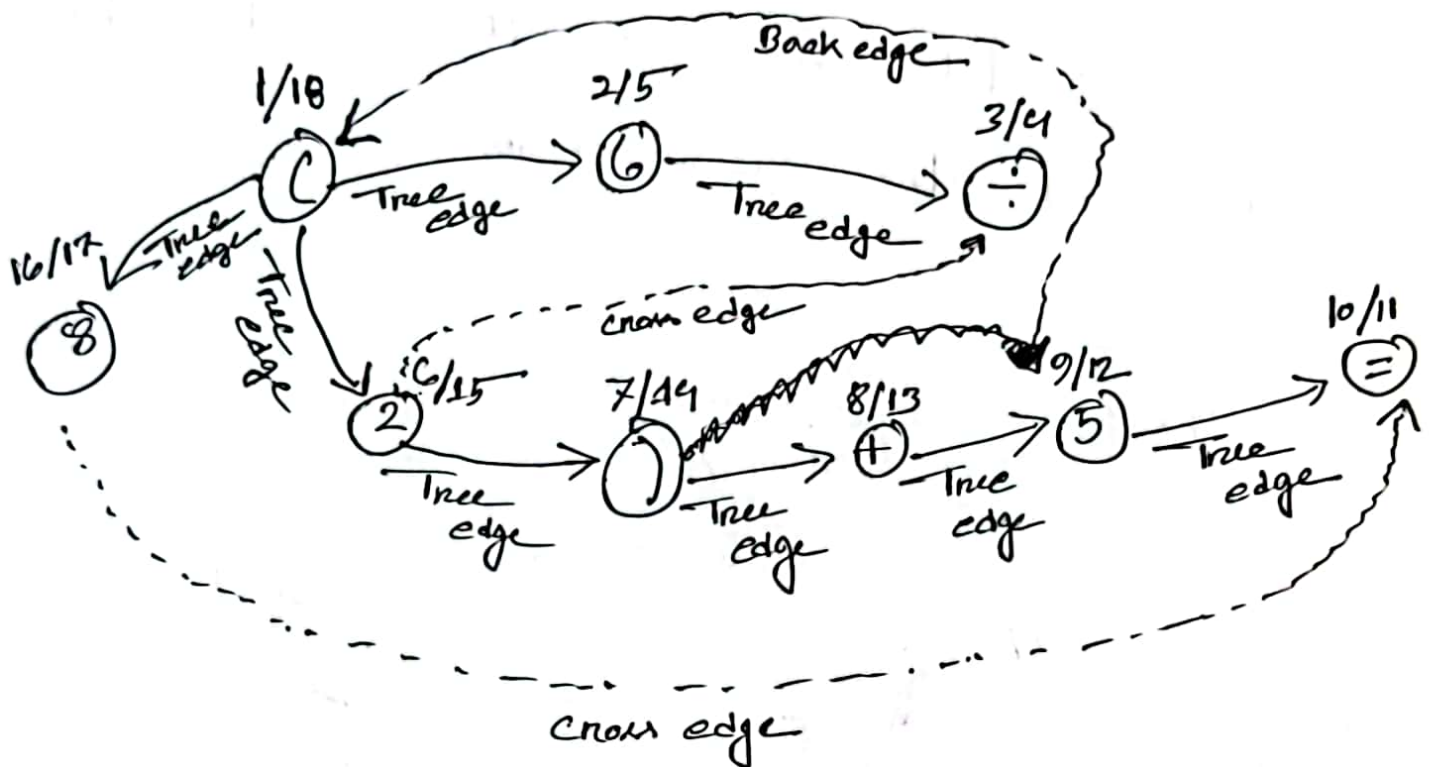 Back edge
1/18
2/5
3/4
(
6
÷
Tree edge
Tree edge
Tree edge
Tree edge
16/17
8
cross edge
6/15
2
7/14
)
8/13
+
9/12
5
10/11
=
Tree edge
Tree edge
Tree edge
Tree edge
cross edge